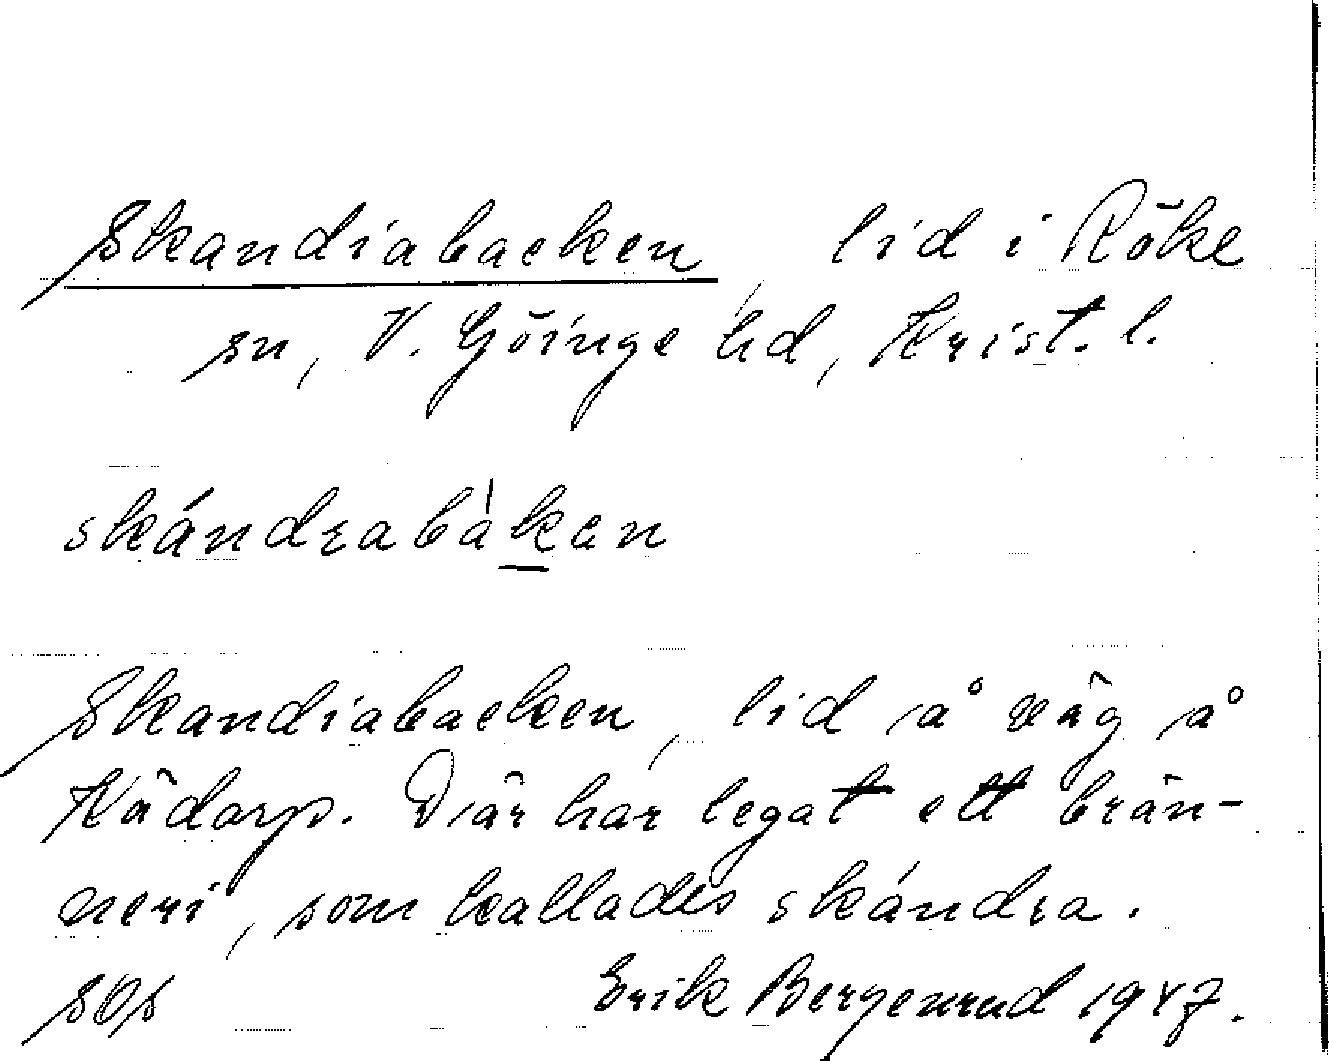 Skandiabacken, lid i Röke
sn, V. Göinge hd, Krist. l.
skándɪabàkan
Skandiabacken, lid å väg å
Kädarp. Där har legat ett brän-
neri, som kallades skándɪa.
Erik Bergenrud 1947.